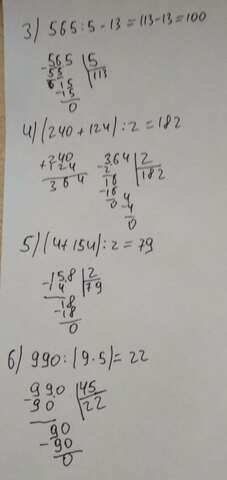 3) 565 : 5 - 13 = 113 - 13 = 100
- 565 | 5
55 | 113
6 15
- 15
0
4) (240 + 124) : 2 = 182
+ 240
124
364
- 364 | 2
2 | 182
16
- 16
0 4
- 4
0
5) (4 + 154) : 2 = 79
- 158 | 2
14 | 79
18
- 18
0
6) 990 : (9 · 5) = 22
- 990 | 45
90 | 22
90
- 90
0